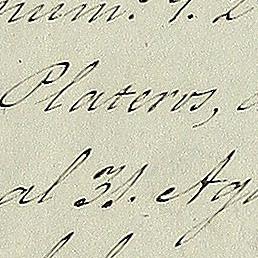 num. 1. 2
Plateros,
al 31. Ag